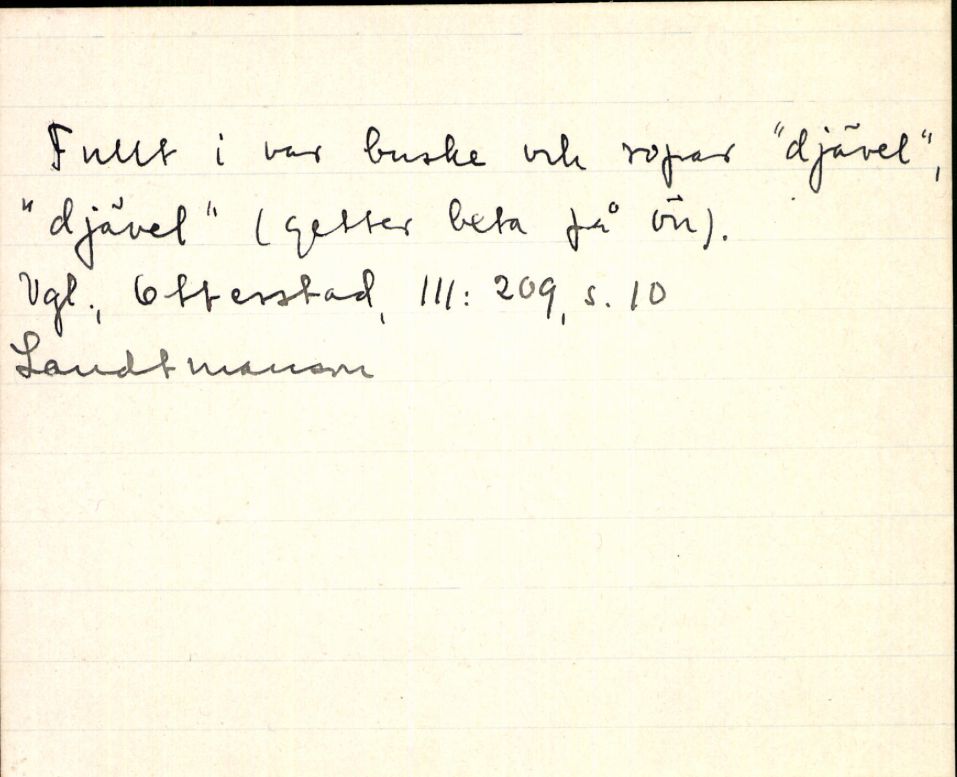 Fullt i var buske och ropar "djävel",
"djävel" (getter beta på ön).
Vgl., Otterstad, III: 209, s. 10
Landtmanson